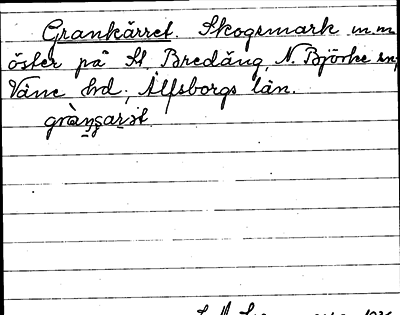 Grankärret. Skogsmark m m
öster på St. Bredäng, N. Björke sn,
Väne hd, Älfsborgs län.